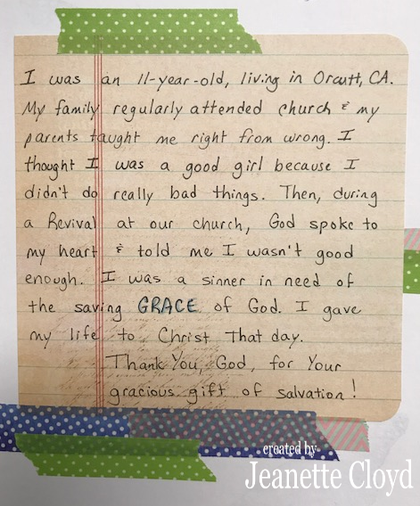 I was an 11-year-old, living in Orcutt, CA.
My family regularly attended church & my
parents taught me right from wrong. I
thought I was a good girl because I
didn't do really bad things. Then, during
a Revival at our church, God spoke to
my heart & told me I wasn't good
enough. I was a sinner in need of
the saving GRACE of God. I gave
my life to Christ that day.
Thank You, God, for Your
gracious gift of salvation!
created by
Jeanette Cloyd